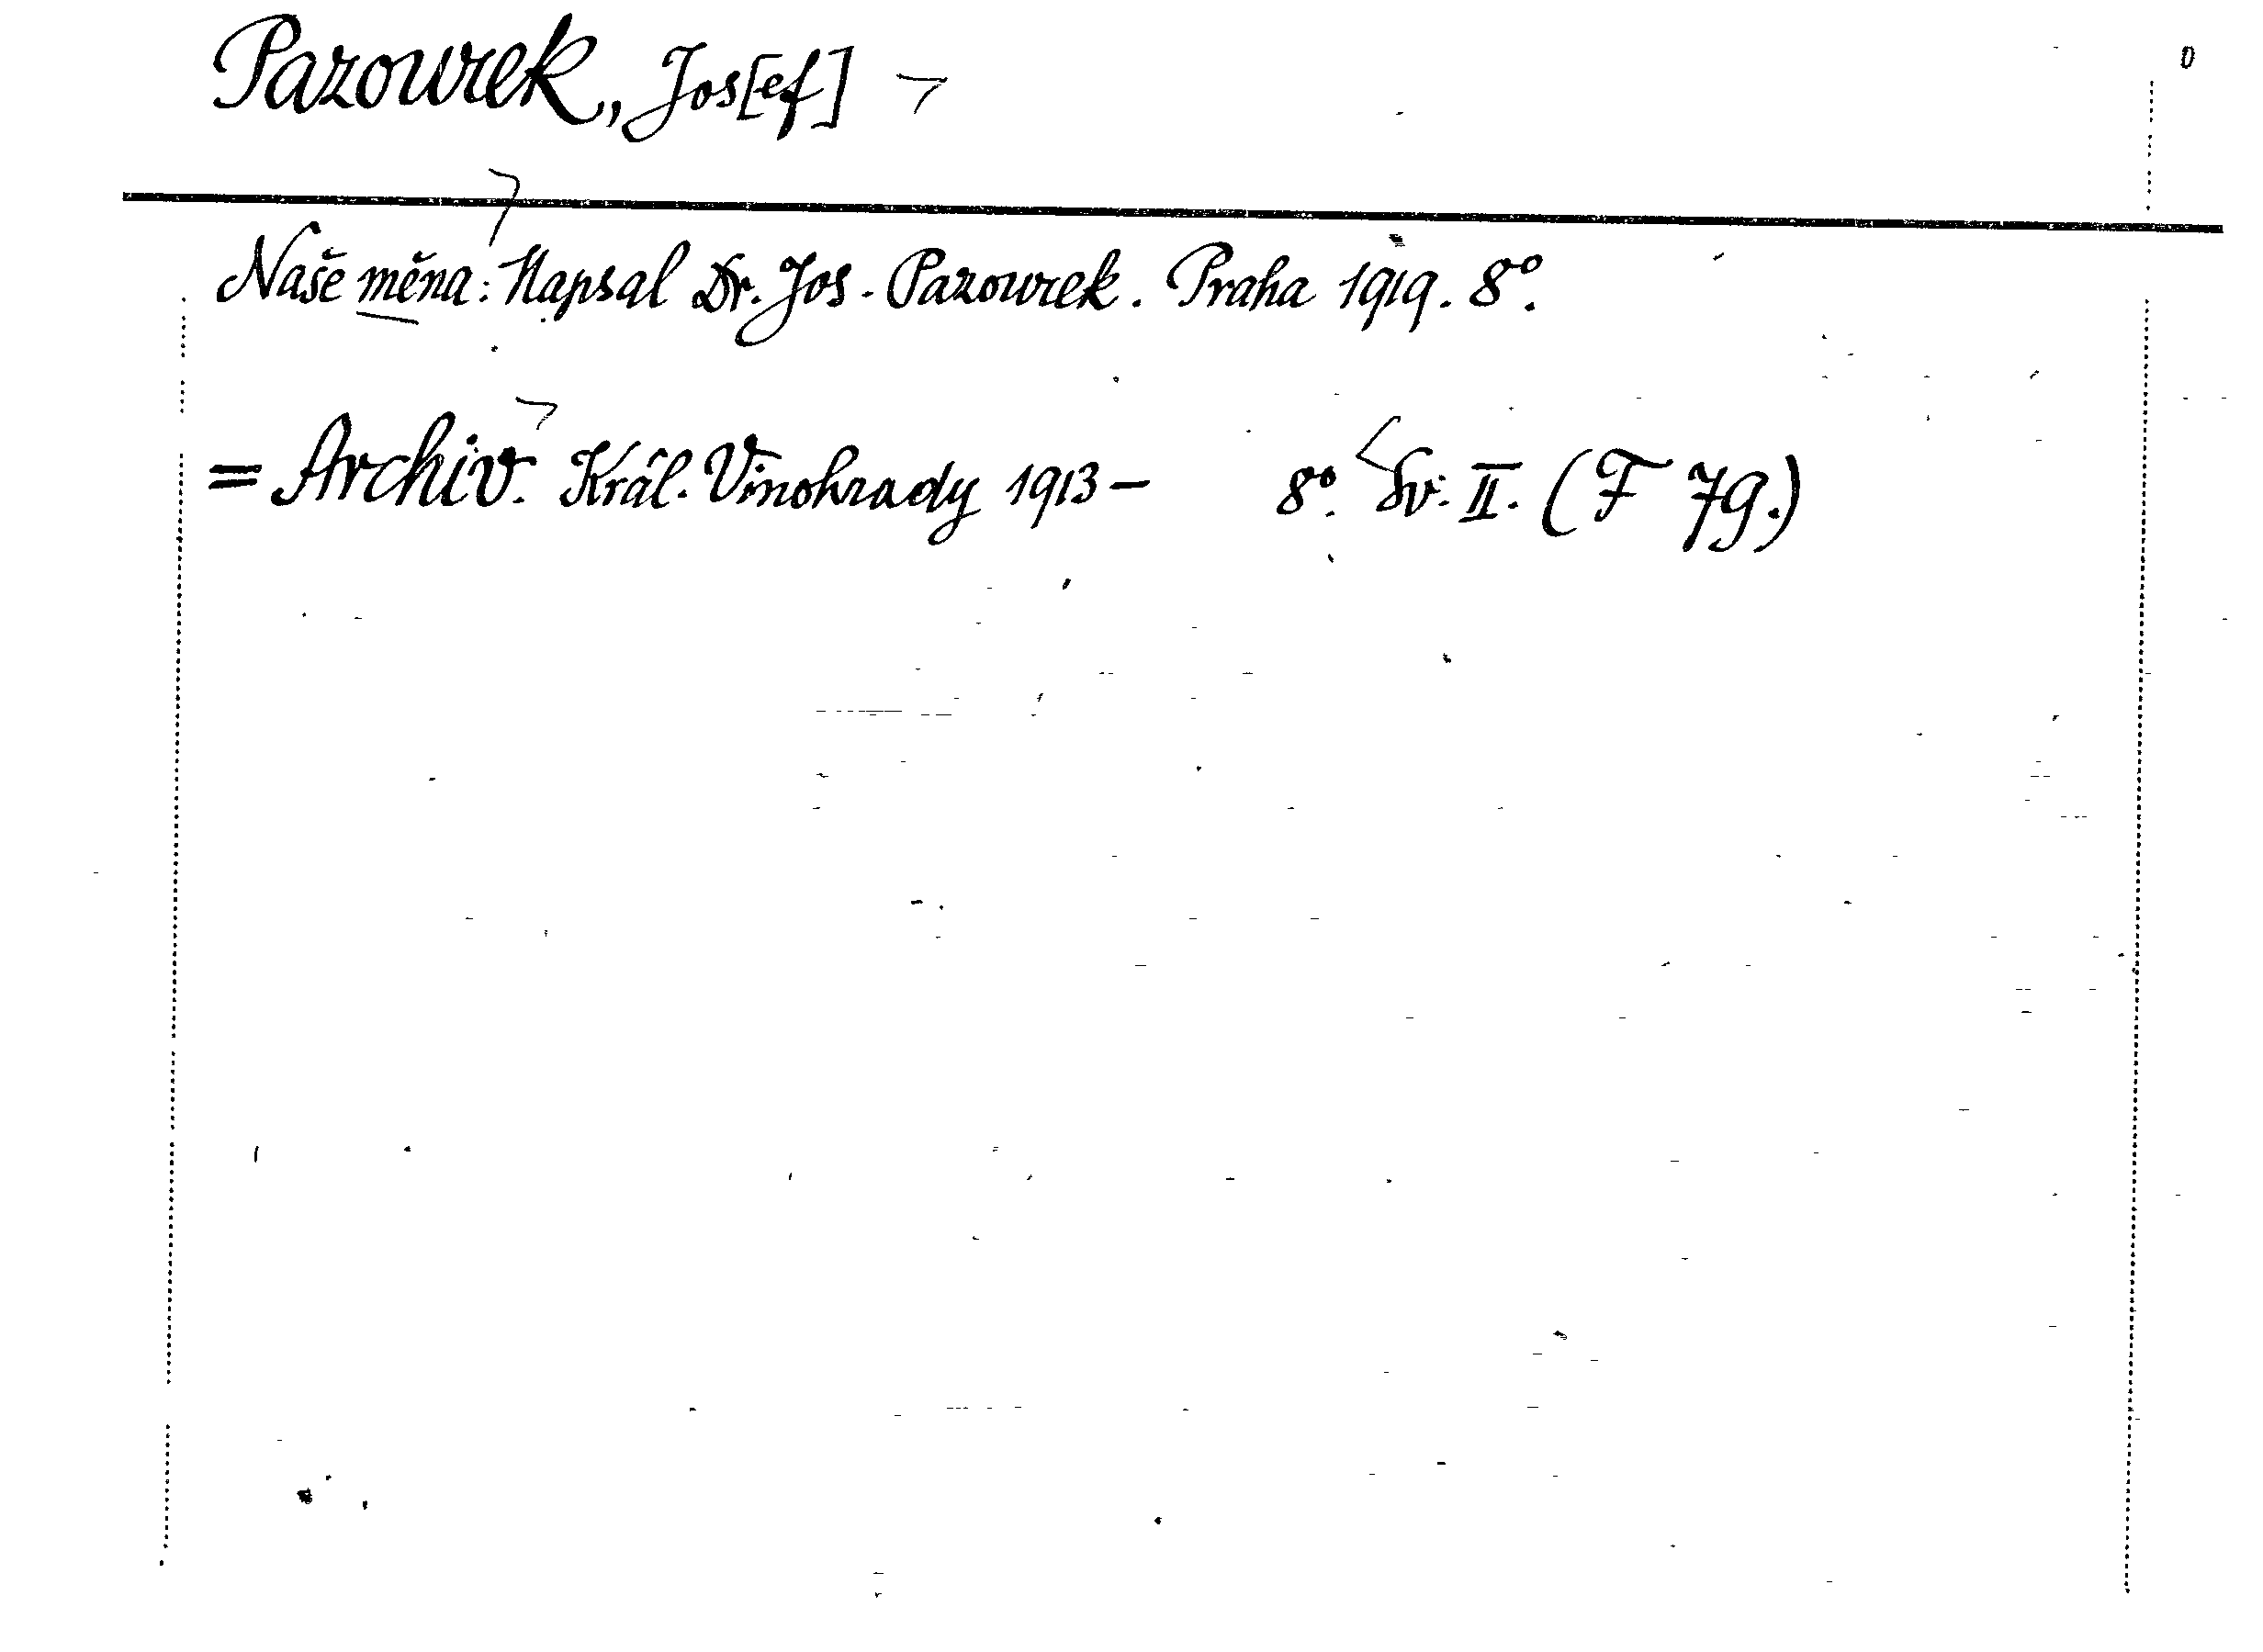 Pazourek, Jos[ef]
Naše měna. Napsal Dr. Jos. Pazourek. Praha 1919. 8°.
= Archiv. Král. Vinohrady 1913 – 8°. Sv. II. (F 79.)